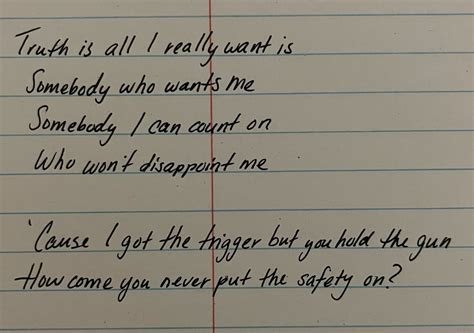 Truth is all I really want is
Somebody who wants me
Somebody I can count on
Who won't disappoint me
'Cause I got the trigger but you hold the gun
How come you never put the safety on?